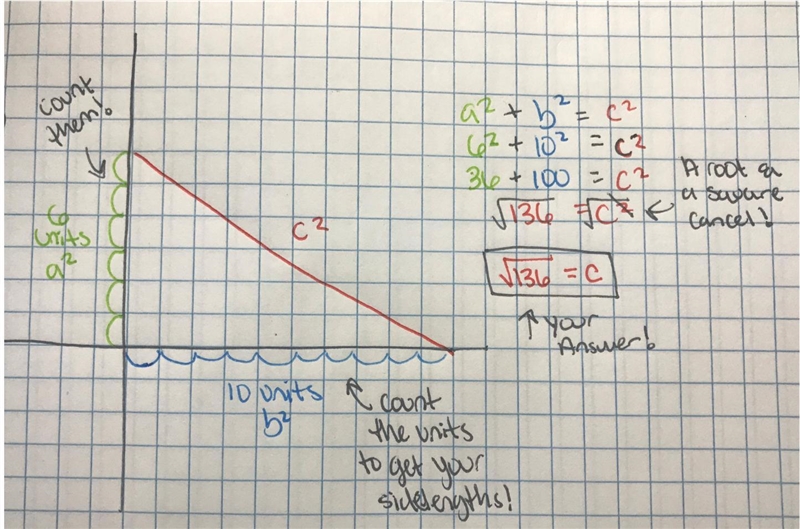 count
them!
6
units
a²
c²
10 units
b²
count
the units
to get your
sidelengths!
a² + b² = c²
6² + 10² = c²
36 + 100 = c²
√136 = √c²
A root &
a square
cancel!
√136 = c
your
Answer!